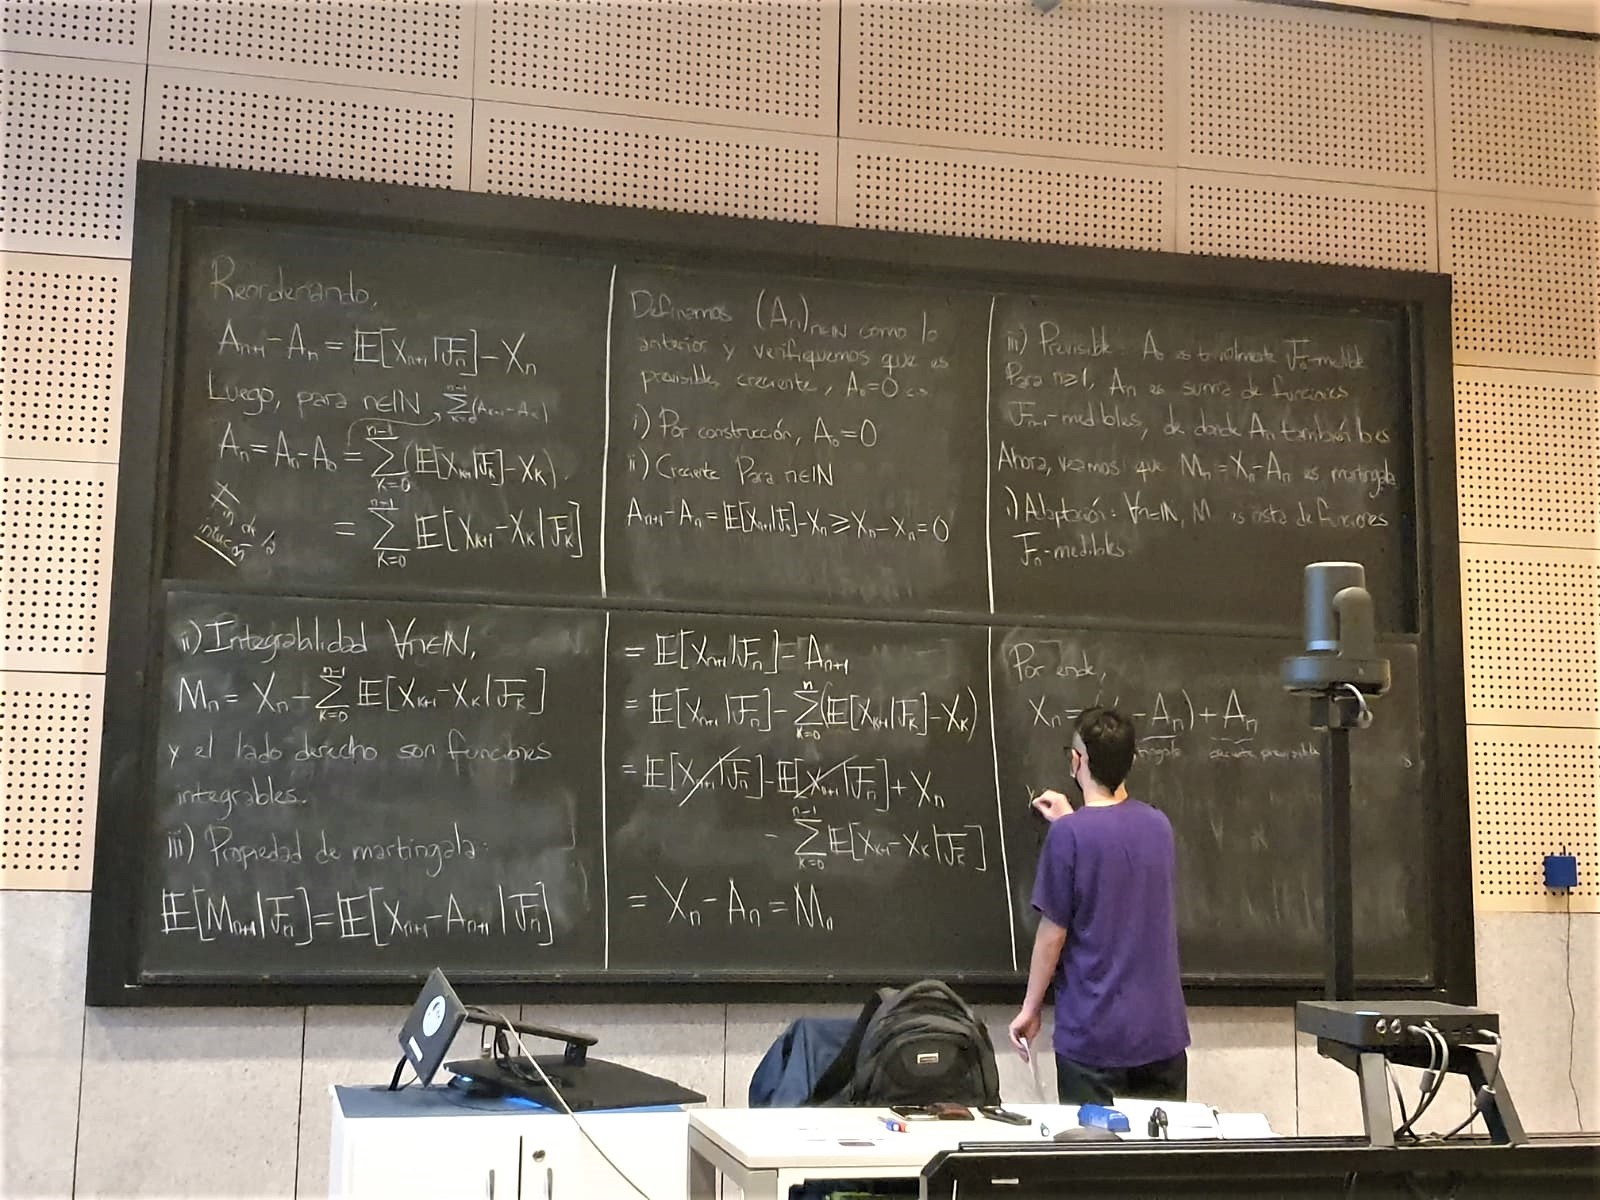 Reordenando,
Aₙ₊₁ - Aₙ = 𝔼[Xₙ₊₁|ℱₙ] - Xₙ
Luego, para n∈ℕ, ∑ₖ₌₀ⁿ⁻¹(Aₖ₊₁ - Aₖ)
Aₙ = Aₙ - A₀ = ∑ₖ₌₀ⁿ⁻¹(𝔼[Xₖ₊₁|ℱₖ] - Xₖ).
= ∑ₖ₌₀ⁿ⁻¹ 𝔼[Xₖ₊₁ - Xₖ|ℱₖ]
Definamos (Aₙ)ₙ∈ℕ como lo
anterior y verifiquemos que es
previsible, creciente, A₀=0 cs
i) Por construcción, A₀=0
ii) Creciente Para n∈ℕ
Aₙ₊₁ - Aₙ = 𝔼[Xₙ₊₁|ℱₙ] - Xₙ ⩾ Xₙ - Xₙ = 0
iii) Previsible: A₀ es trivialmente ℱ₀-medible
Para n≥1, Aₙ es suma de funciones
ℱₙ₋₁-medibles, de donde Aₙ también lo es
Ahora, veamos que Mₙ = Xₙ - Aₙ es martingala
i) Adaptación: ∀n∈ℕ, M es resta de funciones
ℱₙ-medibles.
ii) Integrabilidad ∀n∈ℕ,
Mₙ = Xₙ - ∑ₖ₌₀ⁿ⁻¹ 𝔼[Xₖ₊₁ - Xₖ|ℱₖ]
y el lado derecho son funciones
integrables.
iii) Propiedad de martingala:
𝔼[Mₙ₊₁|ℱₙ] = 𝔼[Xₙ₊₁ - Aₙ₊₁|ℱₙ]
= 𝔼[Xₙ₊₁|ℱₙ] = Aₙ₊₁
= 𝔼[Xₙ₊₁|ℱₙ] - ∑ₖ₌₀ⁿ(𝔼[Xₖ₊₁|ℱₖ] - Xₖ)
= 𝔼[Xₙ₊₁|ℱₙ] - 𝔼[Xₙ₊₁|ℱₙ] + Xₙ
- ∑ₖ₌₀ⁿ⁻¹ 𝔼[Xₖ₊₁ - Xₖ|ℱₖ]
= Xₙ - Aₙ = Mₙ
Por ende,
Xₙ = - Aₙ) + Aₙ
creciente previsible